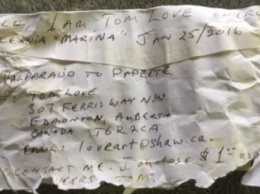 I AM TOM LOVE ON
"MARINA" JAN 25/2016
VALPARAISO TO PAPEETE
TOM LOVE
307 FERRIS WAY NW
EDMONTON, ALBERTA
CANADA T6R2CA
EMAIL: loveart@shaw.ca.
CONTACT ME. I $1
YOURS TOM